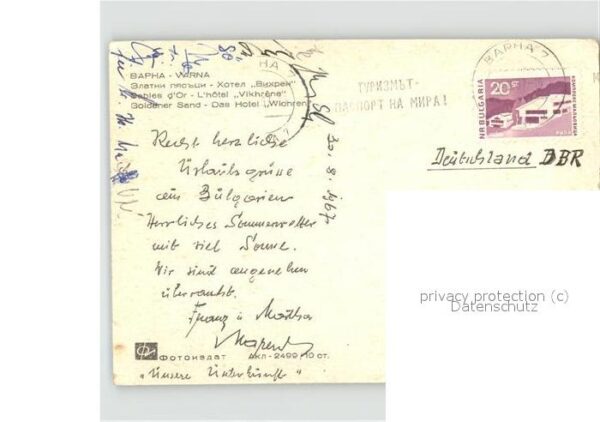 ВАРНА - VARNA
Златни пясъци - Хотел „Вихрен"
Sables d'Or - L'hôtel „Vikhrène"
Goldener Sand - Das Hotel „Wichren"
ВАРНА 7
ТУРИЗМЪТ-
ПАСПОРТ НА МИРА!
20 ст
NR BULGARIA
Deutschland BBR
Recht herzliche
Urlaubsgrüsse
aus Bulgarien
Herrliches Sommerwetter
mit viel Sonne.
Wir sind angenehm
überrascht.
Franz u. Martha
30.8.1967
Фотоиздат
ДКЛ-2499/10 ст.
„Unsere Unterkunft"
privacy protection (c)
Datenschutz